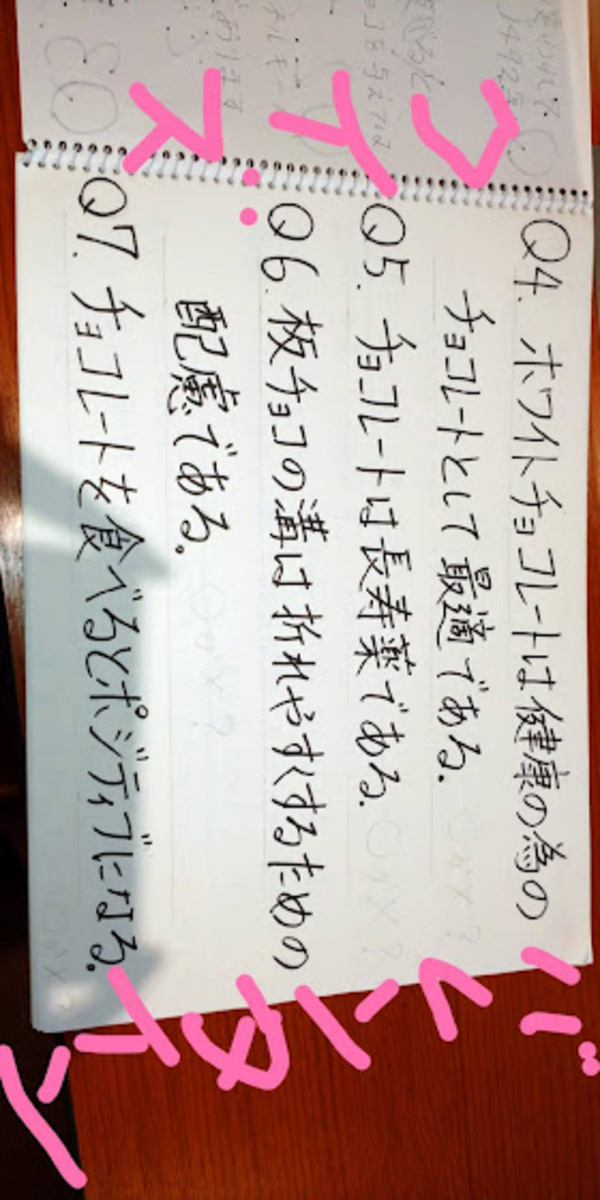 バレンタイン
クイズ
Q4. ホワイトチョコレートは健康の為の
チョコレートとして最適である。
Q5. チョコレートは長寿薬である。
Q6. 板チョコの溝は折れやすくするための
配慮である。
Q7. チョコレートを食べるとポジティブになる。